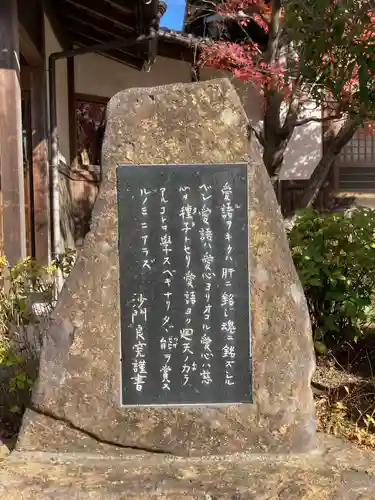 愛語ヲキクハ肝ニ銘ジ魂ニ銘ズシ
ルベシ愛語ハ愛心ヨリオコル愛心ハ慈
心ヲ種子トセリ愛語ヨク廻天ノカラ
アルコトヲ學スベキナリタヾ能ヲ賞ス
ルノミニアラズ
沙門良寛謹書